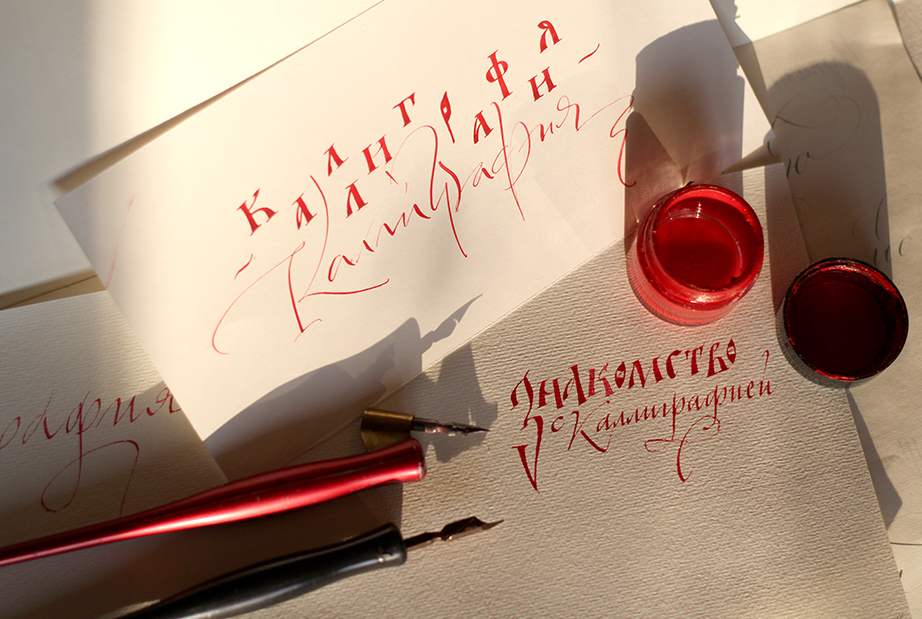 КАЛЛИГРАФИЯ
Каллиграфия
рафия
ЗНАКОМСТВО
с Каллиграфией